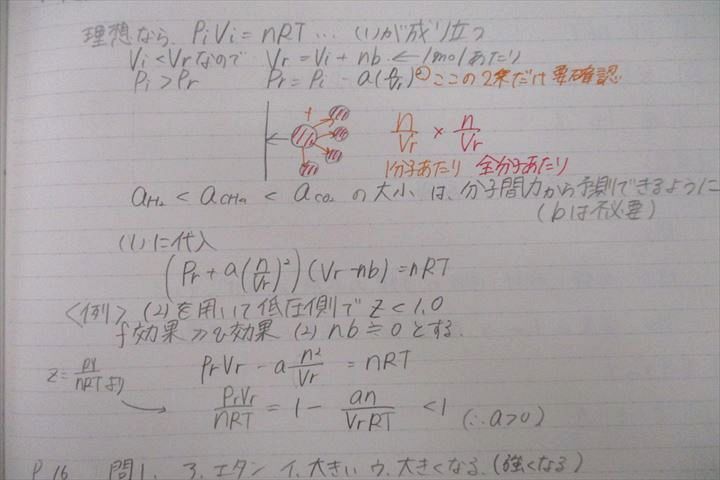 理想なら、PiVi = nRT … (1)が成り立つ
Vi < Vr なので Vr = Vi + nb ← 1molあたり
Pi > Pr Pr = Pi - a(n/Vr)² ここの2乗だけ要確認
n/Vr × n/Vr
1分子あたり 全分子あたり
aH₂ < aCH₄ < aCO₂ の大小は、分子間力から予測できるように
(bは不必要)
(1)に代入
(Pr + a(n/Vr)²)(Vr - nb) = nRT
<例> (2)を用いて低圧側で Z < 1.0
f効果 ≫ v効果 (2) nb ≒ 0 とする.
Z = PV/nRT より PrVr - a n²/Vr = nRT
PrVr/nRT = 1 - an/VrRT < 1 (∵ a>0)
P.16 問1. ア. エタン イ. 大きい ウ. 大きくなる. (強くなる)